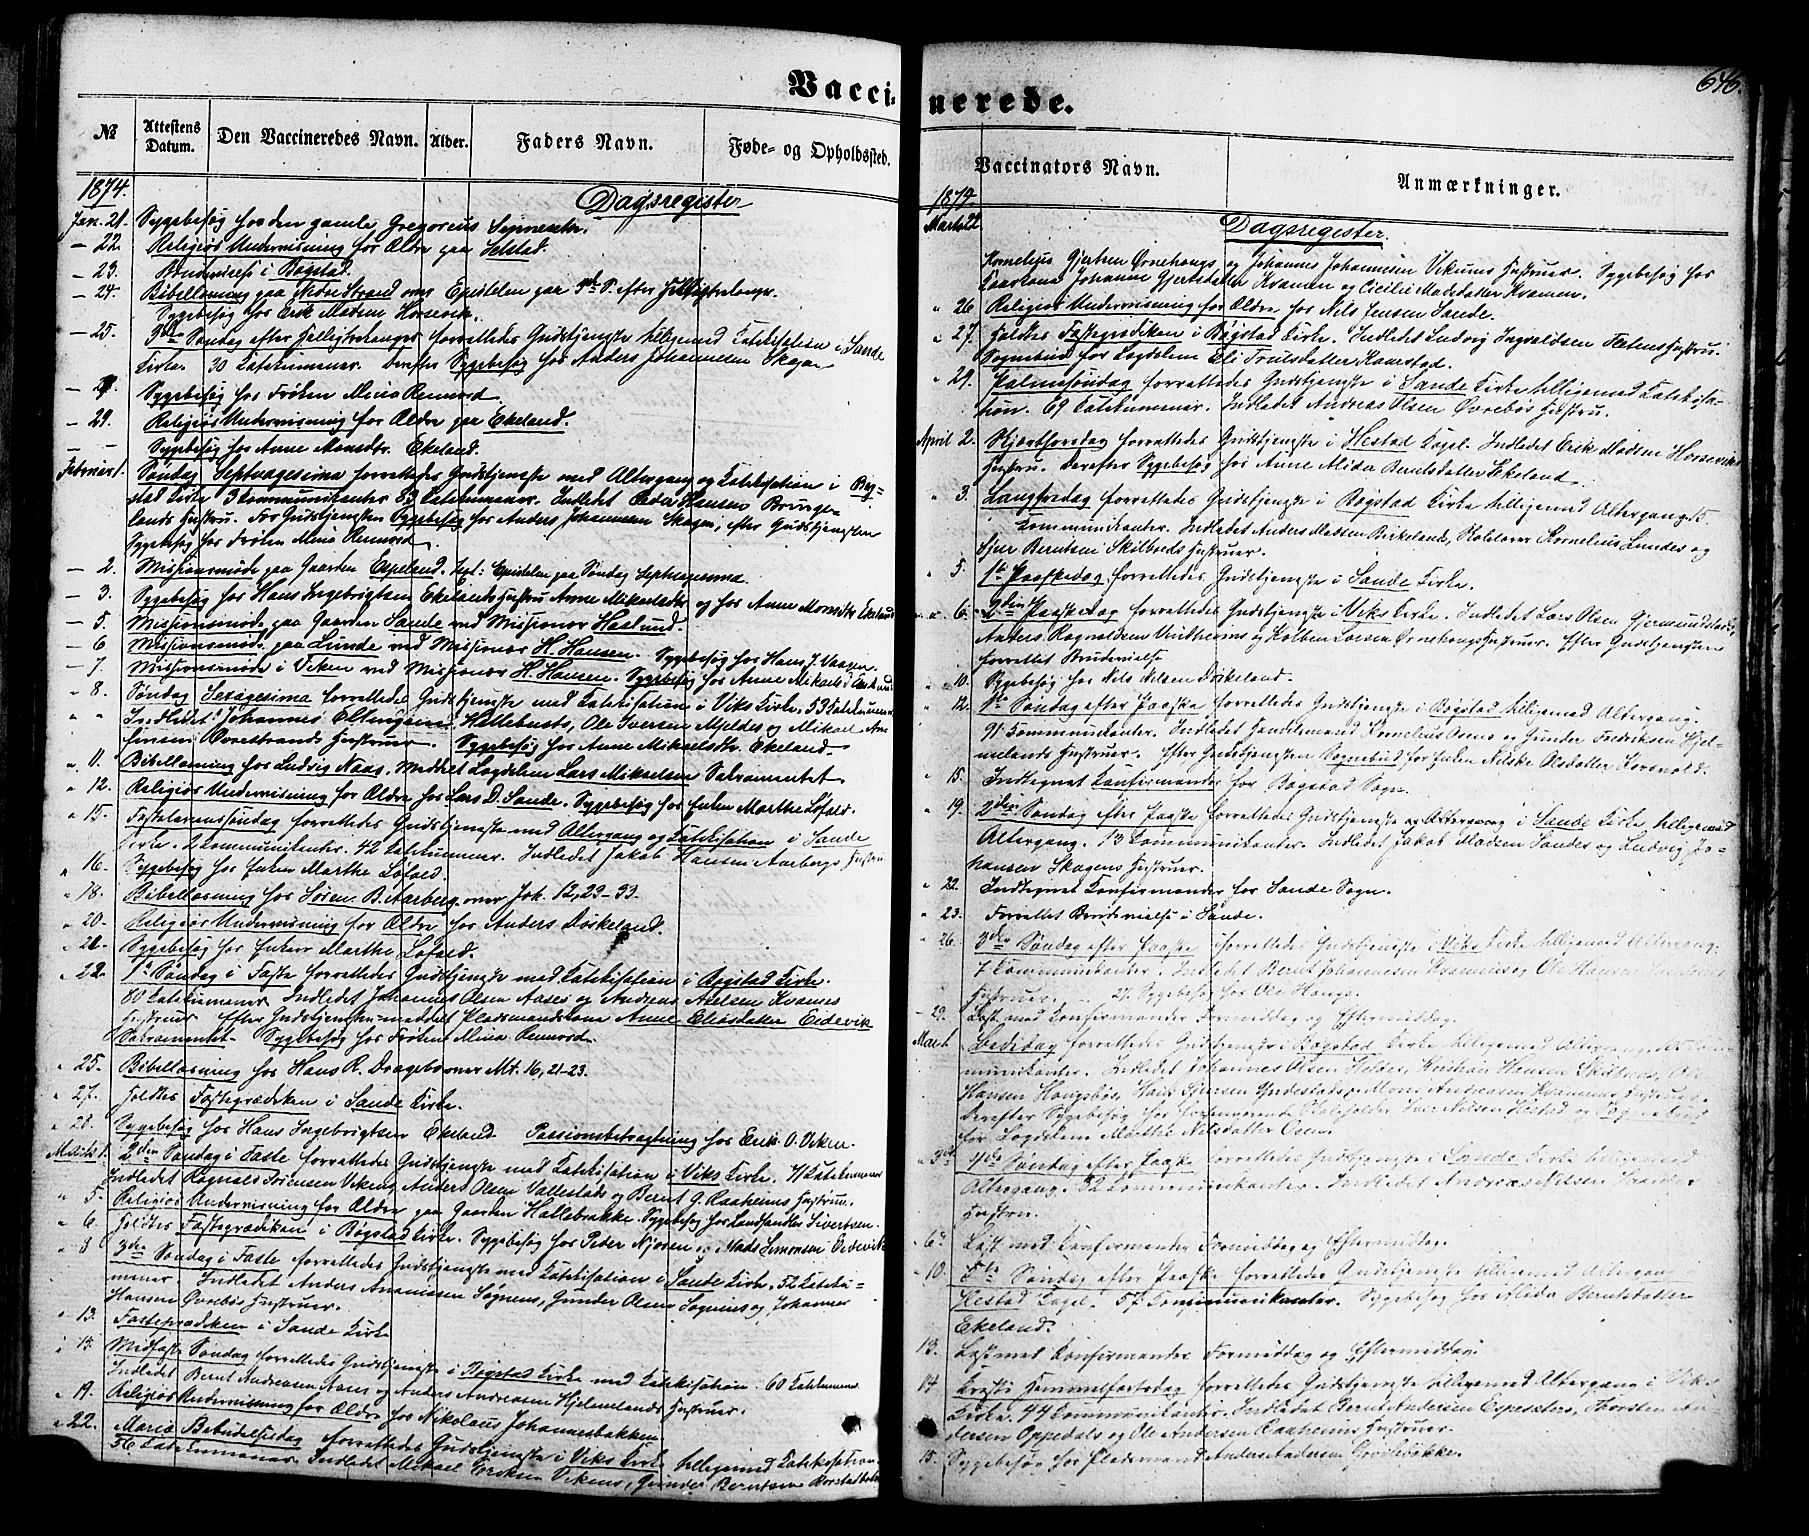 Vacci-
№ Attestens Datum. Den Vaccineredes Navn. Alder. Faders Navn. Føde- og Opholdssted.
1874. Dagsregister
Jan. 21. Sygebesøg hos den gamle Gregorius
— 22. Religiøs Undervisning for Ældre paa Selstad.
— 23. Brudevielse i Bøgstad.
— 24. Bibellæsning paa Strand over Epistelen paa 3de S. efter Helligtrekonger.
Sygebesøg hos Erik Madsen Horsevik.
— 25. 3die Søndag efter Helligtrekonger forrettedes Gudstjeneste tilligemed Katekisation i Sande
Kirke. 30 Katekumener. Derefter Sygebesøg hos Anders Johannesen Skogen
Sygebesøg hos Frøken Mina Renord.
— 29. Religiøs Undervisning for Ældre paa Ekeland.
— Sygebesøg hos Anne Monsdtr. Ekeland.
Februar 1. Søndag Septuagesima forrettedes Gudstjeneste med Altergang og Katekisation i Bøg-
stad Kirke 3 Kommunikanter 83 Katekumener. Indledet Peder Hansens Bringe-
lands Hustru. Før Gudstjenesten Sygebesøg hos Anders Johannesen Skogen, efter Gudstjenesten
Sygebesøg hos Frøken Mina Renord.
— 2. Missionsmøde paa Gaarden Espeland. Text: Epistelen paa Søndag Septuagesima.
— 3. Sygebesøg hos Hans Ingebrigtsen Ekelands Hustru Anne Mikaelsdtr og hos Anne Monsdtr Ekeland
— 5. Missionsmøde paa Gaarden Sande ved Missionær Haslund.
— 6. Missionsmøde paa Lunde ved Missionær H. Hansen. Sygebesøg hos Hans J. Vaagen.
— 7. Missionsmøde i Viken ved Missionær H. Hansen. Sygebesøg hos Anne Mikaelsd Ekeland
" 8. Søndag Sexagesima forrettedes Gudstjeneste med Katekisation i Viks Kirke. 53 Katekumener
" " Indledet Johannes Hallebusts, Ole Iversen Mjeldes og Mikael
Øvrestrands Hustruer. Sygebesøg hos Anne Mikaelsdtr. Ekeland.
" 11. Bibellæsning hos Ludvig Naas. Meddelt Lægdslem Lars Mikaelsen Sakramentet
" 12. Religiøs Undervisning for Ældre hos Lars D. Sande. Sygebesøg hos Enken Marthe Løfald.
" 15. Fastelavnssøndag forrettedes Gudstjeneste med Altergang og Katekisation i Sande
Kirke. 2 Kommunikanter. 42 Katekumener. Indledet Jakob Hansen Aarbergs Hustru
" 16. Sygebesøg hos Enken Marthe Løfald.
" 18. Bibellæsning hos Søren B. Aarberg over Joh. 12, 23-33.
" 20. Religiøs Undervisning for Ældre hos Anders Døskeland.
" 21. Sygebesøg hos Enken Marthe Løfald.
" 22. 1ste Søndag i Faste forrettedes Gudstjeneste med Katekisation i Bøgstad Kirke.
80 Katekumener. Indledet Johannes Olsen Aases og Andreas Axelsen Kvamens
Hustruer Efter Gudstjenesten meddelt Pladsmandskone Anne Eliasdatter Eidevik
Sakramentet. Sygebesøg hos Frøken Mina Renord.
" 25. Bibellæsning hos Hans R. Dragebø over Mt. 16, 21-23.
" 27. Holdtes Fasteprædiken i Sande Kirke.
" 28. Sygebesøg hos Hans Ingebrigtsen Ekeland. Passionsbetragtning hos Erik O. Viken.
Marts 1. 2den Søndag i Faste forrettedes Gudstjeneste med Katekisation i Viks Kirke. 71 Katekumener
Indledet Rognald Sørensen Vikens, Anders Olsen Vallestads og Bernt G. Raaheims Hustruer.
" 5. Religiøs Undervisning for Ældre paa Gaarden Hallebrække. Sygebesøg hos Landhandler Sivertsen.
" 6. Holdtes Fasteprædiken i Bøgstad Kirke. Sygebesøg hos Peder Njøsen og Mads Simonsen Eidevik
" 8 3die Søndag i Faste forrettedes Gudstjeneste med Katekisation i Sande Kirke. 52 Kateku-
mener. Indledet Anders Ananiassen Sognens, Gunder Olsens Sognens og Johannes
Hansen Øvrebøs Hustruer.
" 13. Fasteprædiken i Sande Kirke
" 15. Midfaste Søndag forrettedes Gudstjeneste i Bøgstad Kirke med Katekisation. 60 Katekumener
Indledet Bernt Andreasen Aases og Anders Andreasen Hjelmelands Hustruer.
" 19. Religiøs Undervisning for Ældre hos Nikolaus Johannesbakken
" 22. Mariæ Bebudelsesdag forrettedes Gudstjeneste i Viks Kirke tilligemed Katekisation
56 Katekumener. Indledet Mikael Eriksen Vikens, Gunder Berntsen
nerede.
646.
Vaccinators Navn. Anmærkninger.
1874 Dagsregister.
Marts 22. Kornelius Gjertsen Ørnehougs og Johannes Johannesen Vikums Hustruer. Sygebesøg hos
Johanne Gjertsdatter Kvamen og Cicilie Madsdatter Kvamen.
" 26 Religiøs Undervisning for Ældre hos Nils Jensen Sande.
" 27. Holdtes Fasteprædiken i Bøgstad Kirke. Indledet Ludvig Ingvaldsen Fletens Hustru.
Sognebud for Lægdslem Eli
" 29. Palmesøndag forrettedes Gudstjeneste i Sande Kirke tilligemed Katekisa-
tion. 69 Katekumener. Indledet Andreas Olsen Øvrebøs Hustru.
April 2. Skjærthorsdag forrettedes Gudstjeneste i Hestad Kapel. Indledet Erik Madsen Horseviks
Hustru. Derefter Sygebesøg hos Anne Alida Berntsdatter Ekeland.
" 3. Langfredag forrettedes Gudstjeneste i Bøgstad Kirke tilligemed Altergang. 15
Kommunikanter. Indledet Anders Madsen Birkeland, Kornelius Lundes og
Sjur Berntsen Skilbreds Hustruer.
" 5. 1ste Paaskedag forrettedes Gudstjeneste i Sande Kirke.
" 6. 2den Paaskedag forrettedes Gudstjeneste i Viks Kirke. Indledet Lars Olsen Gjermundstads,
Anders Rognaldsen Vindheims og Kolben Larsen Ørnehougs Hustruer. Efter Gudstjenesten
forrettet Brudevielse
" 10. Sygebesøg hos Nils Nilsen Døskeland.
" 12. 1ste Søndag efter Paaske forrettedes Gudstjeneste i Bøgstad tilligemed Altergang.
91 Kommunikanter. Indledet Handelsmand Kornelius Osens og Gunder Fredriksen Hjel-
melands Hustruer. Efter Gudstjenesten Sognebud for Enken Nilske Olsdatter
" 15. Indtegnet Konfirmander for Bøgstad Sogn.
" 19. 2den Søndag efter Paaske forrettedes Gudstjeneste i Sande Kirke tilligemed
Altergang. 13 Kommunikanter. Indledet Jakob Madsen Sandes og Ludvig Jo-
hansen Skogens Hustruer.
" 22. Indtegnet Konfirmander for Sande Sogn.
" 23. Forrettet Brudevielse i Sande.
" 26. 3die Søndag efter Paaske forrettedes Gudstjeneste i Viks Kirke tilligemed Altergang.
7 Kommunikanter Indledet Bernt Johannesen Kvamens og Ole Hansen
Hustruer. — 27. Sygebesøg hos Ole Hougs.
— 29. Læst med Konfirmander Formiddag og Eftermiddag.
Mai 1. Bededag forrettedes Gudstjeneste i Bøgstad Kirke tilligemed Altergang. Kom-
munikanter. Indledet Johannes Olsen Helles, Kristian Hansen Ole
Hansen Hougsbøs, Hans Sjursen Mons Andreasen Kvamens Hustruer.
Derefter Sygebesøg hos forhenværende Iver Nilsen Hestad og
for Lægdslem Marthe Nilsdatter Osen.
" 3. 4de Søndag efter Paaske forrettedes Gudstjeneste i Sande Kirke tilligemed
Altergang. 52 Kommunikanter. Indledet Andreas Nilsen
Hustru.
" 6. Læst med Konfirmander Formiddag og Eftermiddag.
" 10. 5te Søndag efter Paaske forrettedes Gudstjeneste tilligemed Altergang
Hestad Kapel. 57 Kommunikanter. Sygebesøg hos Alida Berntsdatter
Ekeland.
13. Læst med Konfirmander Formiddag og Eftermiddag.
14 Kristi Himmelfartsdag forrettedes Gudstjeneste tilligemed Altergang i Viks
Kirke. 44 Kommunikanter. Indledet Bernt Andersen Espesæters, Thorsten An-
dersen Oppedals og Ole Andersen Raaheims Hustruer.
15. Sygebesøg hos Pladsmand Anders Andersen